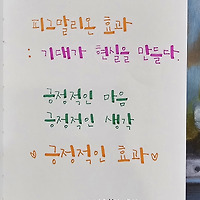 피그말리온 효과
: 기대가 현실을 만들다.
긍정적인 마음
긍정적인 생각
♡ 긍정적인 효과 ♡